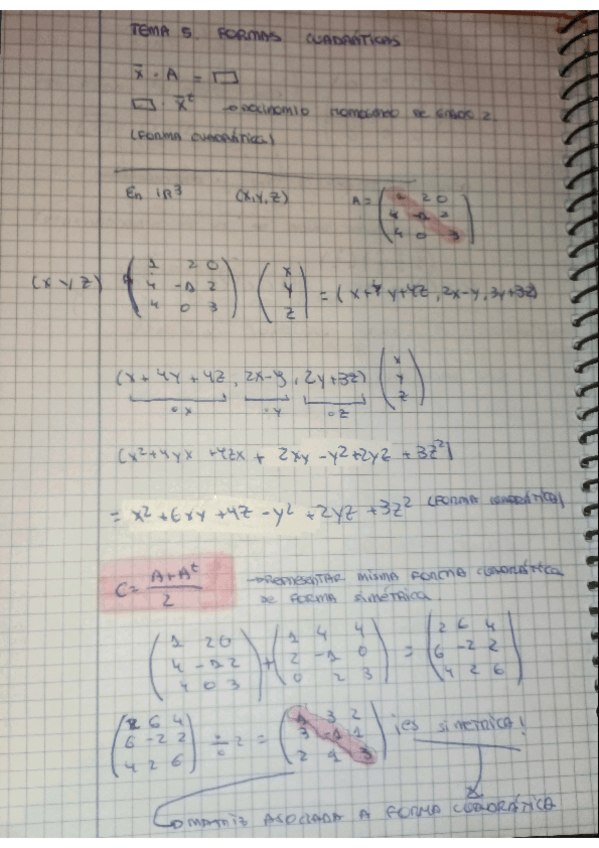 TEMA 5. FORMAS CUADRÁTICAS
x̄ · A = □
□ · x̄ᵗ → polinomio homogéneo de grado 2.
(FORMA CUADRÁTICA)
En ℝ³ (x,y,z) A = (1 2 0 / 4 -1 2 / 4 0 3)
(x y z) (1 2 0 / 4 -1 2 / 4 0 3) (x / y / z) = (x+4y+4z, 2x-y, 3y+3z)
(x + 4y + 4z, 2x-y, 2y+3z) (x / y / z)
·x ·y ·z
(x²+4yx +4zx + 2xy -y²+2yz + 3z²)
= x² + 6xy +4z -y² +2yz +3z² (FORMA CUADRÁTICA)
C = (A+Aᵗ)/2 → REPRESENTAR misma FORMA CUADRÁTICA
de FORMA SIMÉTRICA
(1 2 0 / 4 -1 2 / 4 0 3) + (1 4 4 / 2 -1 0 / 0 2 3) = (2 6 4 / 6 -2 2 / 4 2 6)
(2 6 4 / 6 -2 2 / 4 2 6) ÷ 2 = (1 3 2 / 3 -1 1 / 2 1 3) ¡es simétrica!
→ MATRIZ ASOCIADA A FORMA CUADRÁTICA